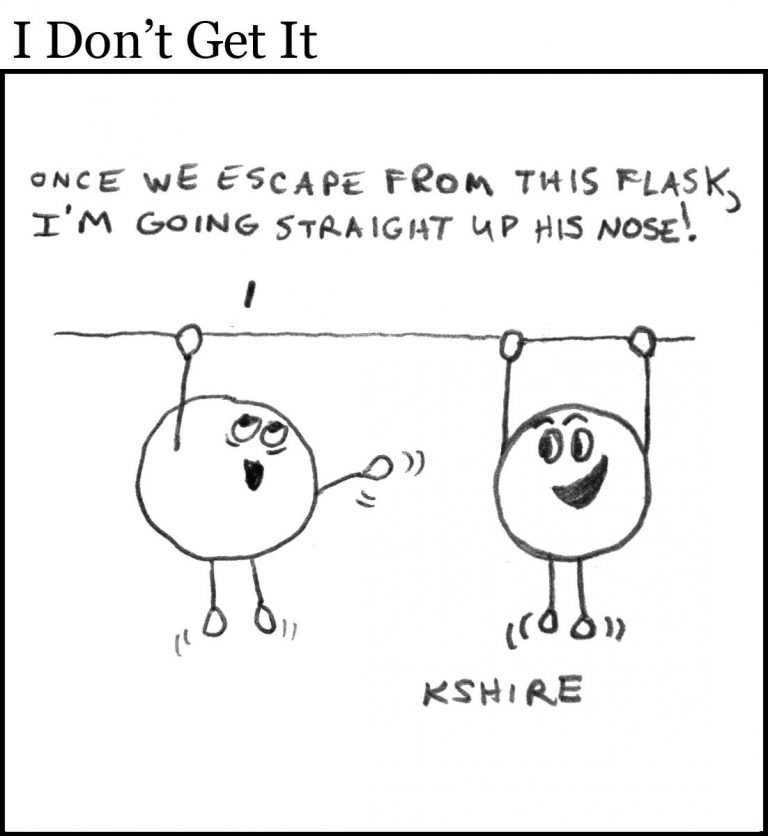 I Don’t Get It
ONCE WE ESCAPE FROM THIS FLASK,
I'M GOING STRAIGHT UP HIS NOSE!
KSHIRE